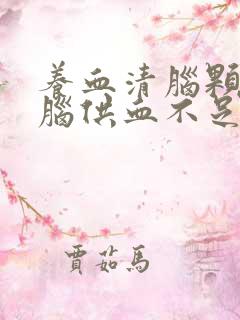 養血清腦顆
腦供血不足
賈茹馬